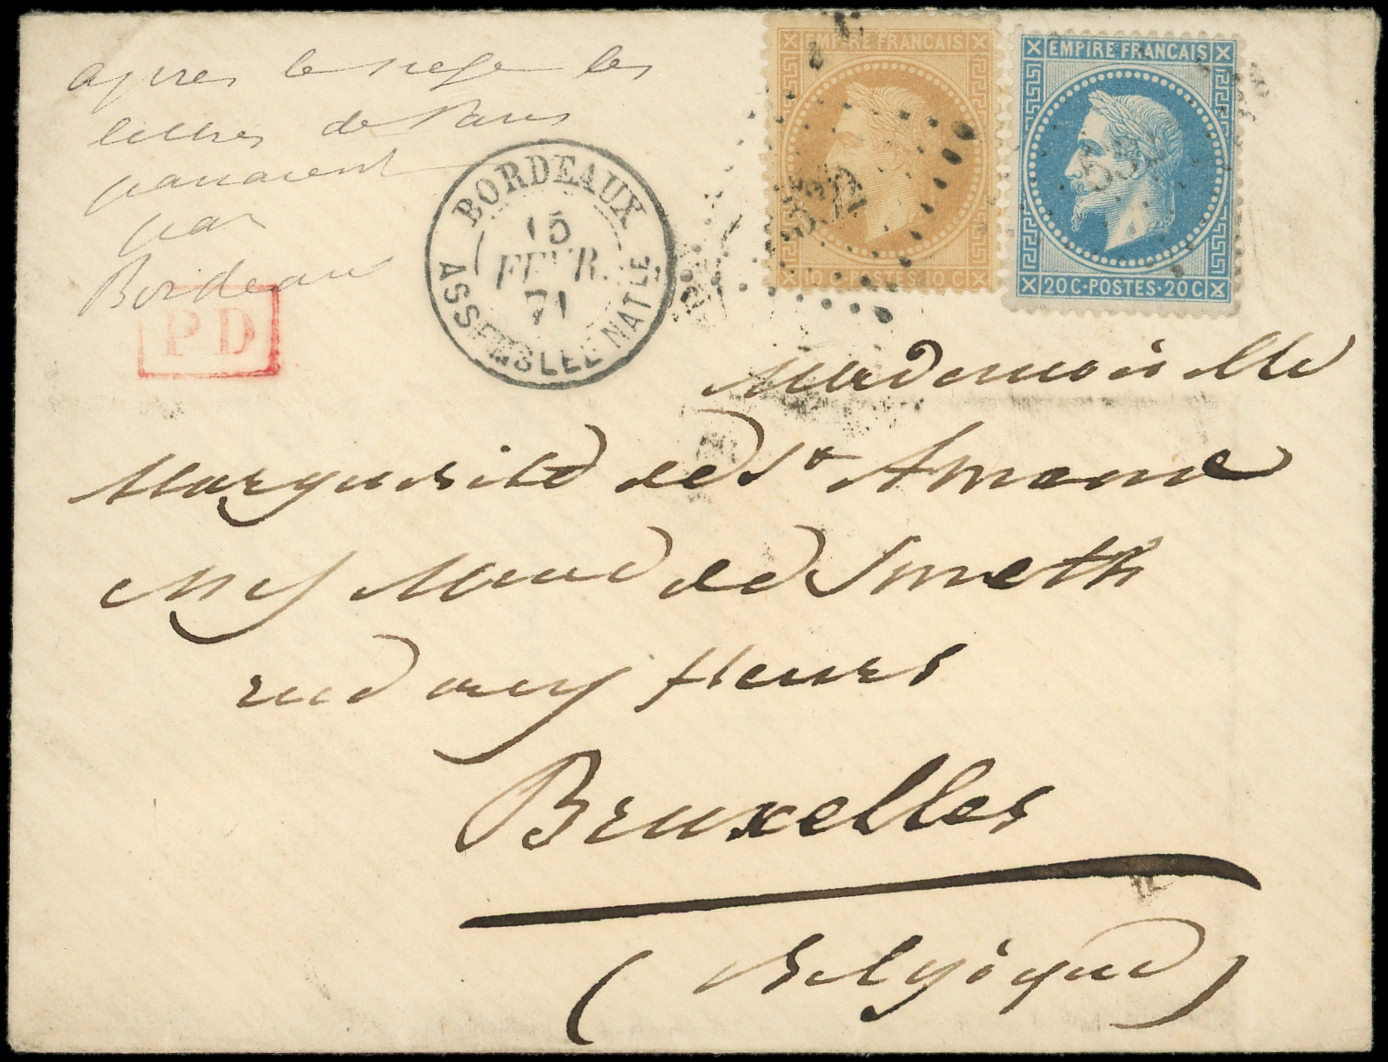 après le siege les
lettres de Paris
passaient
par
Bordeaux
EMPIRE FRANCAIS
10 C · POSTES · 10 C
EMPIRE FRANÇAIS
20 C · POSTES · 20 C
532
532
BORDEAUX
15
FEVR.
71
ASSEMBLEE NATLE
PD
Mademoiselle
Marguerite de St Amand
de Smeth
rue aux fleurs
Bruxelles
(Belgique)